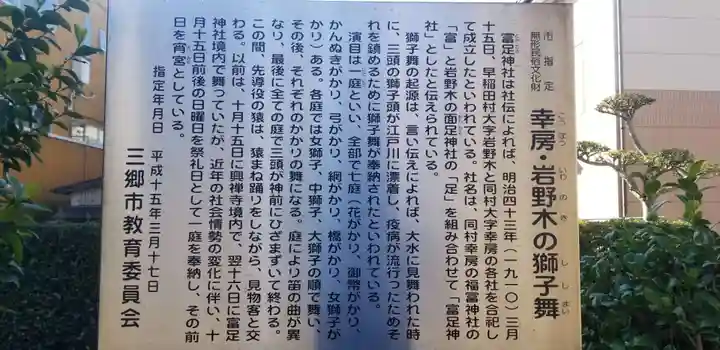 市指定
無形民俗文化財
幸房・岩野木の獅子舞
こうぼう いわのき ししまい
富足神社は社伝によれば、明治四十三年(一九一〇)三月
十五日、早稲田村大字岩野木と同村大字幸房の各社を合祀し
て成立したといわれている。社名は、同村幸房の福富神社の
「富」と岩野木の面足神社の「足」を組み合わせて「富足神
社」としたと伝えられている。
獅子舞の起源は、言い伝えによれば、大水に見舞われた時
に、三頭の獅子頭が江戸川に漂着し、疫病が流行ったためそ
れを鎮めるために獅子舞が奉納されたといわれている。
演目は一庭といい、全部で七庭(花がかり、御幣がかり、
かんぬきがかり、弓がかり、網がかり、橋がかり、女獅子が
かり)ある。各庭では女獅子、中獅子、大獅子の順で舞い、
その後、それぞれのかかりの舞になる。庭により笛の曲が異
なり、最後に全ての庭で三頭が神前にひざまずいて終わる。
この間、先導役の猿は、猿まね踊りをしながら、見物客と交
わる。以前は、十月十五日に興禅寺境内で、翌十六日に富足
神社境内で舞っていたが、近年の社会情勢の変化に伴い、十
月十五日前後の日曜日を祭礼日として一庭を奉納し、その前
日を宵宮としている。
指定年月日 平成十五年三月十七日
三郷市教育委員会